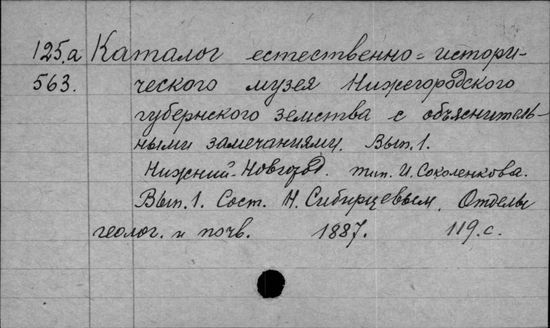 125.a Каталог естественно-истори-
563. ческого музея Нижегородского
губернского земства с объяснитель-
ными замечаниями. Вып. 1.
Нижний-Новгород. тип. И. Соколенкова.
Вып. 1. Сост. Н. Сибирцевым. Отделы
геолог. и почв. 1887. 119. с.